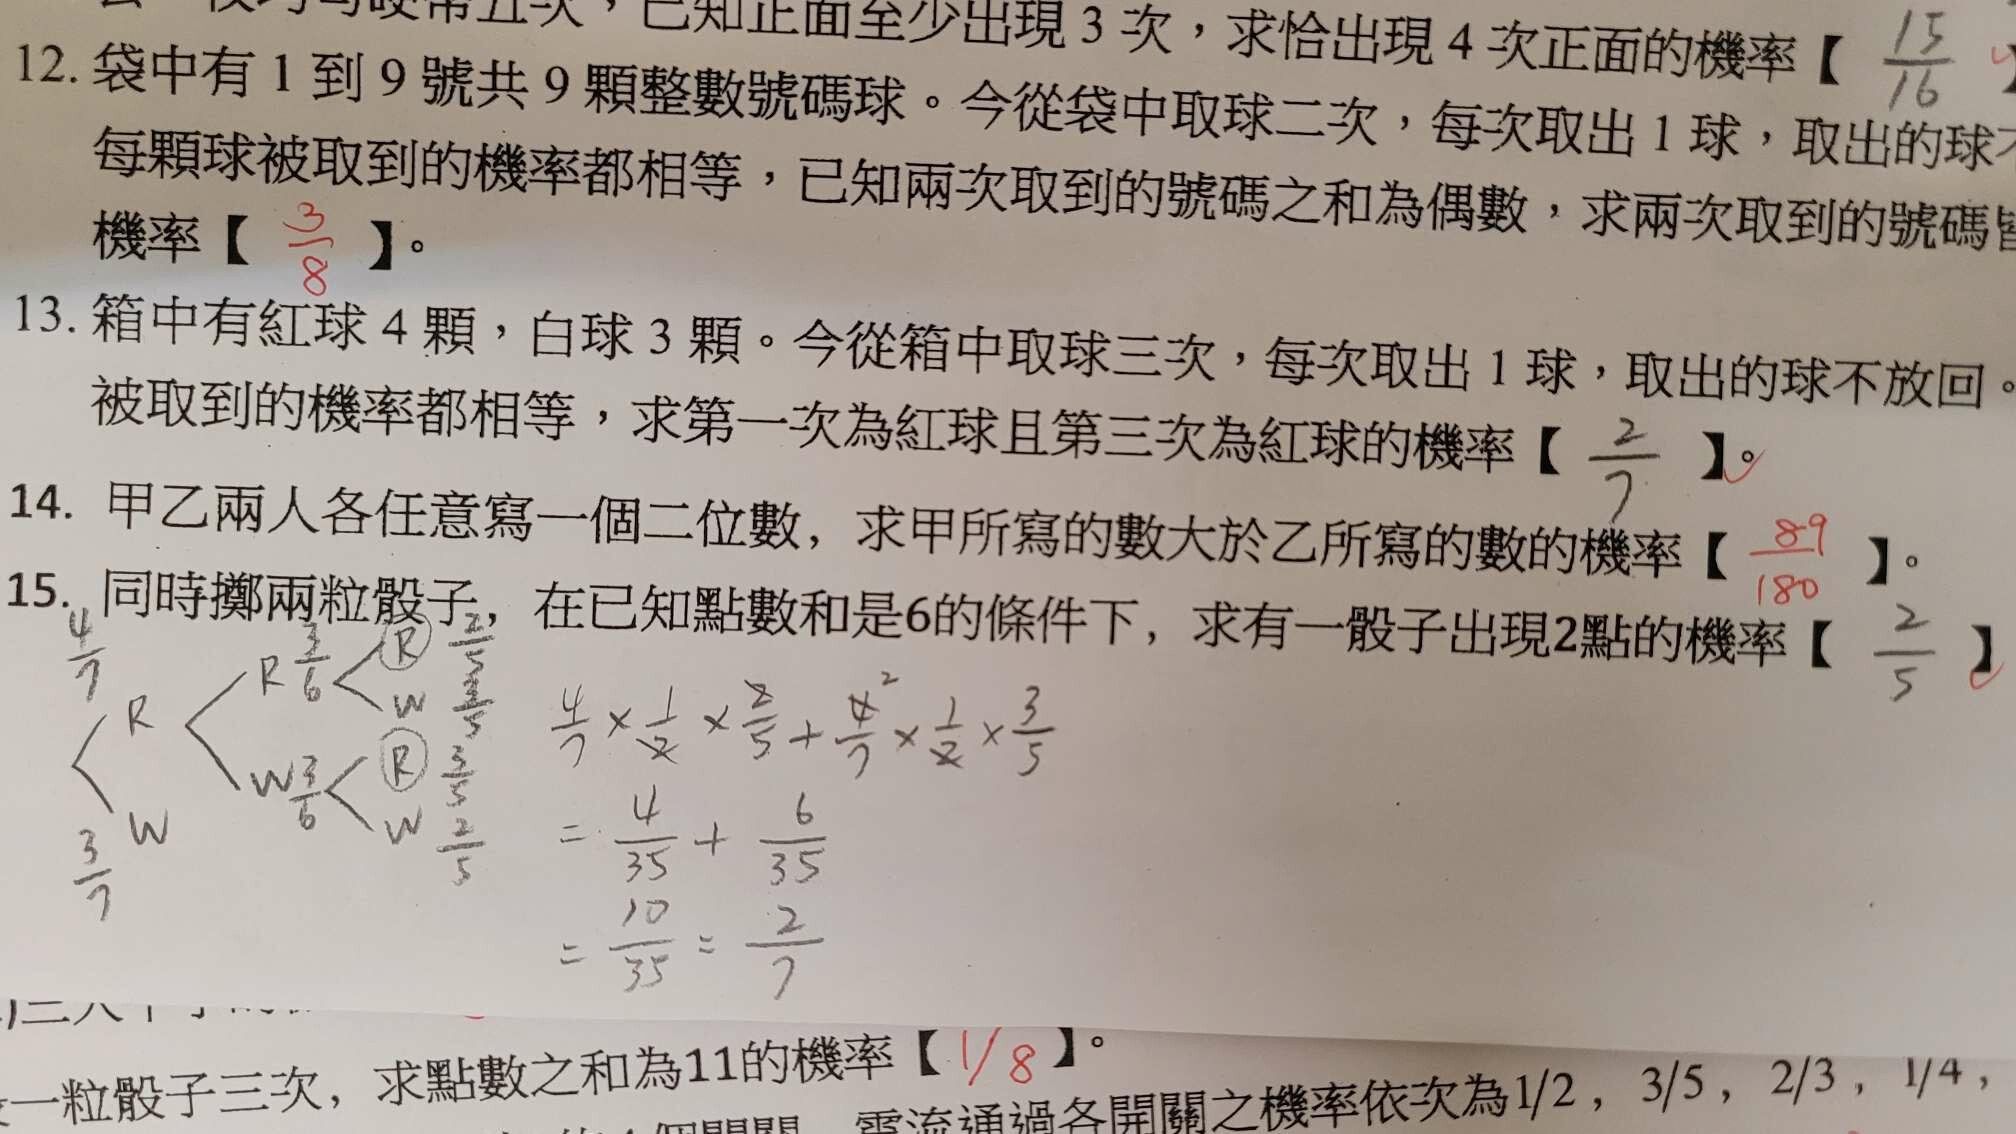 一枚均勻硬幣五次，已知正面至少出現 3 次，求恰出現 4 次正面的機率【 15/16
12. 袋中有 1 到 9 號共 9 顆整數號碼球。今從袋中取球二次，每次取出 1 球，取出的球不
每顆球被取到的機率都相等，已知兩次取到的號碼之和為偶數，求兩次取到的號碼皆
機率【 3/8 】。
13. 箱中有紅球 4 顆，白球 3 顆。今從箱中取球三次，每次取出 1 球，取出的球不放回。
被取到的機率都相等，求第一次為紅球且第三次為紅球的機率【 2/7 】。
14. 甲乙兩人各任意寫一個二位數, 求甲所寫的數大於乙所寫的數的機率【 89/180 】。
15. 同時擲兩粒骰子, 在已知點數和是6的條件下, 求有一骰子出現2點的機率【 2/5 】
4/7 R R 3/6 R 2/5
W 3/5
W 3/6 R 3/5
W 2/5
3/7 W
4/7 × 1/2 × 2/5 + 4/7 × 1/2 × 3/5
= 4/35 + 6/35
= 10/35 = 2/7
一粒骰子三次, 求點數之和為11的機率【 1/8 】。
個開關 電流通過各開關之機率依次為1/2, 3/5, 2/3, 1/4,